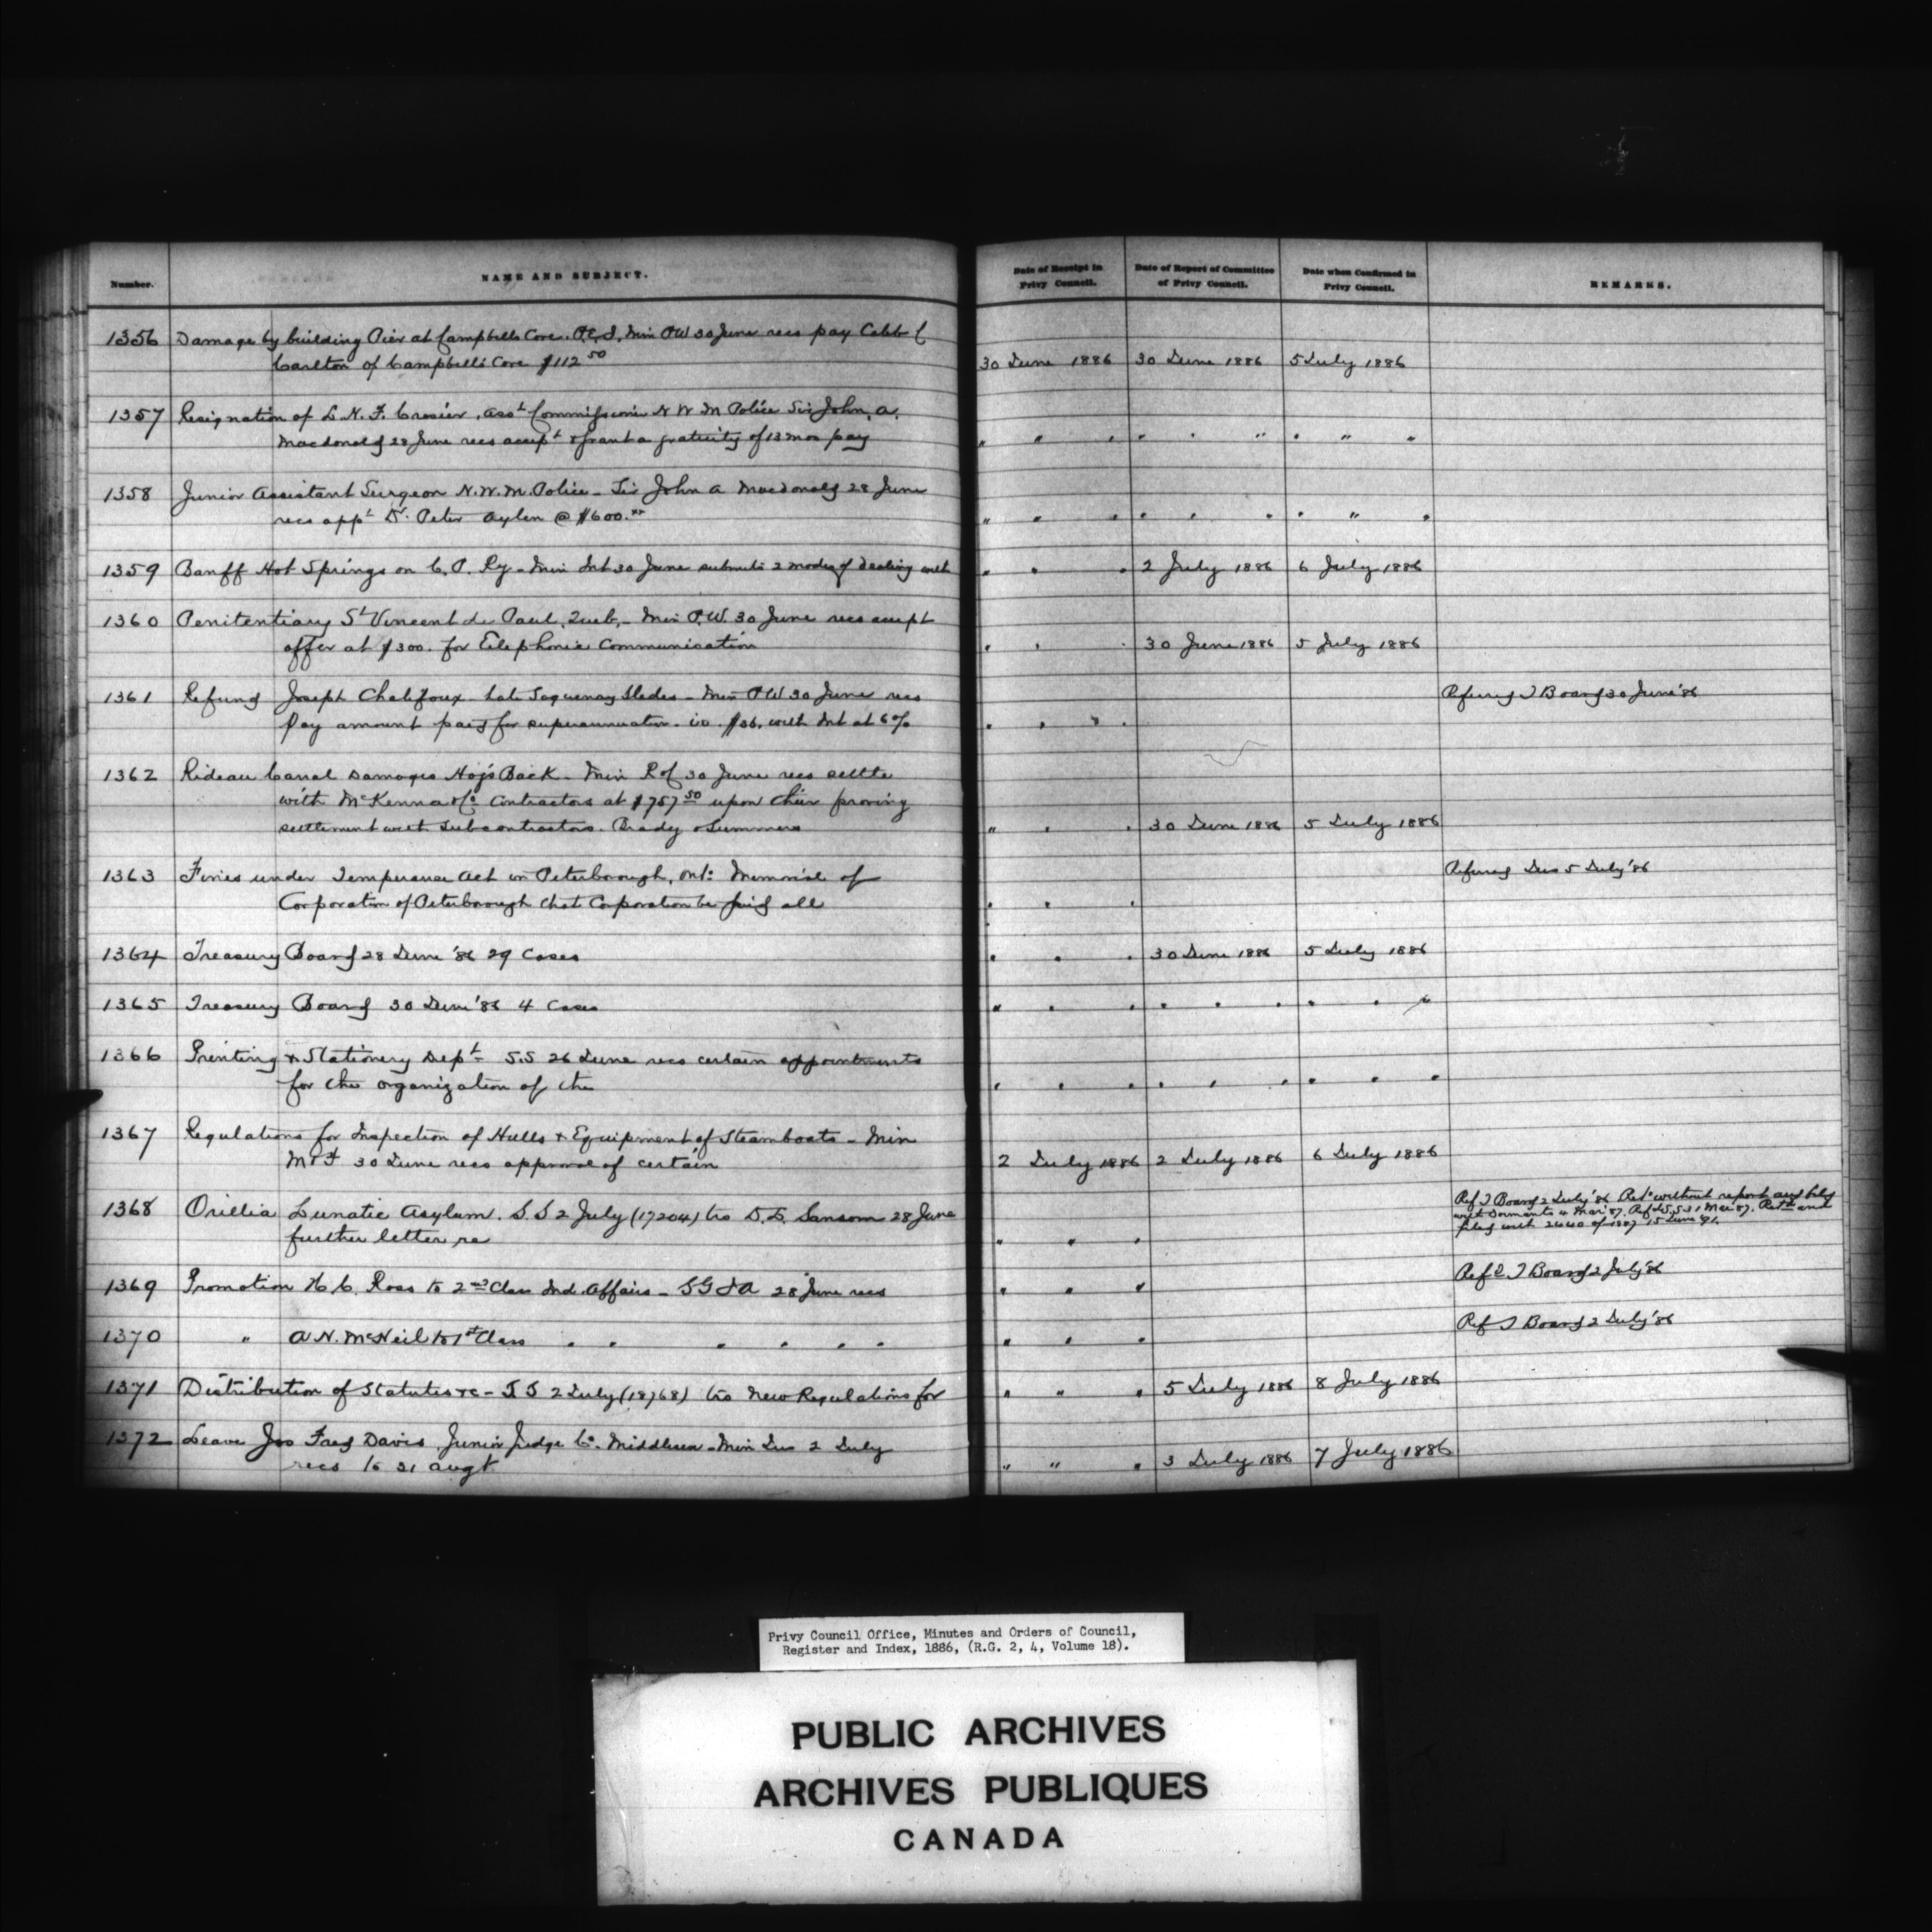 Number. NAME AND SUBJECT. Date of Receipt in Privy Council. Date of Report of Committee of Privy Council. Date when Confirmed in Privy Council. REMARKS.
1356 Damage by building Pier at Campbells Cove. P.E.I. Min PW 30 June recs pay Caleb C
Carlton of Campbells Cove $112 50 30 June 1886 30 June 1886 5 July 1886
1357 Resignation of L. N. F. Crozier, Asst Commissioner N W M Police Sir John A.
Macdonald 28 June recs accept & grant a gratuity of 13 mos pay " " " " " " " " "
1358 Junior Assistant Surgeon N.W.M. Police - Sir John A Macdonald 28 June
recs appt Dr. Peter Aylen @ $600.xx " " " " " " " " "
1359 Banff Hot Springs on C. P. Ry - Min Int 30 June submits 2 modes of dealing with " " " 2 July 1886 6 July 1886
1360 Penitentiary St Vincent de Paul, Queb. - Min P.W. 30 June recs accept
offer at $300. for Telephonic Communication " " " 30 June 1886 5 July 1886
1361 Refund Joseph Chalifoux. late Saguenay Slides - Min PW 30 June recs Referred T Board 30 June '86
Pay amount paid for superannuation. $36. with Int at 6% " " " "
1362 Rideau Canal Damages Hogs Back - Min R of 30 June recs settle
with McKenna & Co Contractors at $757 50 upon their proving
settlement with Subcontractors. Brady & Summers " " " 30 June 1886 5 July 1886
1363 Fines under Temperance Act in Peterborough, Ont: Memorial of Referred Jus 5 July '86
Corporation of Peterborough that Corporation be paid all " " "
1364 Treasury Board 28 June '86 29 Cases " " " 30 June 1886 5 July 1886
1365 Treasury Board 30 June '86 4 Cases " " " " " " " " "
1366 Printing & Stationery Dept - S.S 26 June recs certain appointments
for the organization of the " " " " " " " " "
1367 Regulations for Inspection of Hulls & Equipment of Steamboats - Min
M & F 30 June recs approval of certain 2 July 1886 2 July 1886 6 July 1886
1368 Orillia Lunatic Asylum. S.S 2 July (17204) trs Sansom 28 June Ref T Board 2 July '86 Retd without report and filed
with Dormants 4 Mar '87. Ref S.S 31 Mar '87. Retd and
further letter re " " " filed with 2440 of 1887 15 June '91.
1369 Promotion H C. Ross to 2nd Class Ind. Affairs - SG I A 28 June recs " " " Refd T Board 2 July '86
1370 " A N. McNeil to 1st Class " " " " " " " " " Ref T Board 2 July '86
1371 Distribution of Statutes &c - S S 2 July (18768) trs New Regulations for " " " 5 July 1886 8 July 1886
1372 Leave Jas Fred Davis Junior Judge Co. Middlesex - Min Jus 2 July
recs to 31 Augt " " " 3 July 1886 7 July 1886
Privy Council Office, Minutes and Orders of Council,
Register and Index, 1886, (R.G. 2, 4, Volume 18).
PUBLIC ARCHIVES
ARCHIVES PUBLIQUES
CANADA